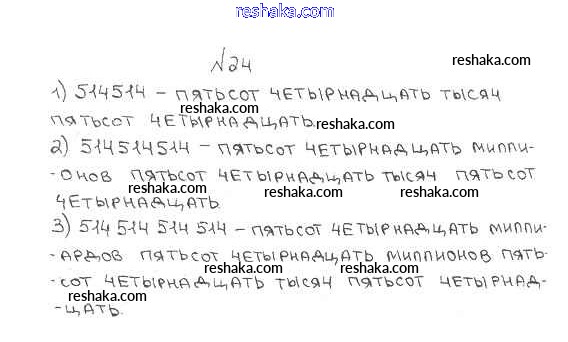 reshaka.com
№24
reshaka.com
1) 514514 – ПЯТЬСОТ ЧЕТЫРНАДЦАТЬ ТЫСЯЧ
ПЯТЬСОТ ЧЕТЫРНАДЦАТЬ.
reshaka.com
2) 514514514 – ПЯТЬСОТ ЧЕТЫРНАДЦАТЬ МИЛЛИ-
-ОНОВ ПЯТЬСОТ ЧЕТЫРНАДЦАТЬ ТЫСЯЧ ПЯТЬСОТ
reshaka.com reshaka.com reshaka.com
ЧЕТЫРНАДЦАТЬ
3) 514 514 514 514 – ПЯТЬСОТ ЧЕТЫРНАДЦАТЬ МИЛЛИ-
-АРДОВ ПЯТЬСОТ ЧЕТЫРНАДЦАТЬ МИЛЛИОНОВ ПЯТЬ-
reshaka.com reshaka.com
-СОТ ЧЕТЫРНАДЦАТЬ ТЫСЯЧ ПЯТЬСОТ ЧЕТЫРНАД-
reshaka.com reshaka.com
-ЦАТЬ.
reshaka.com